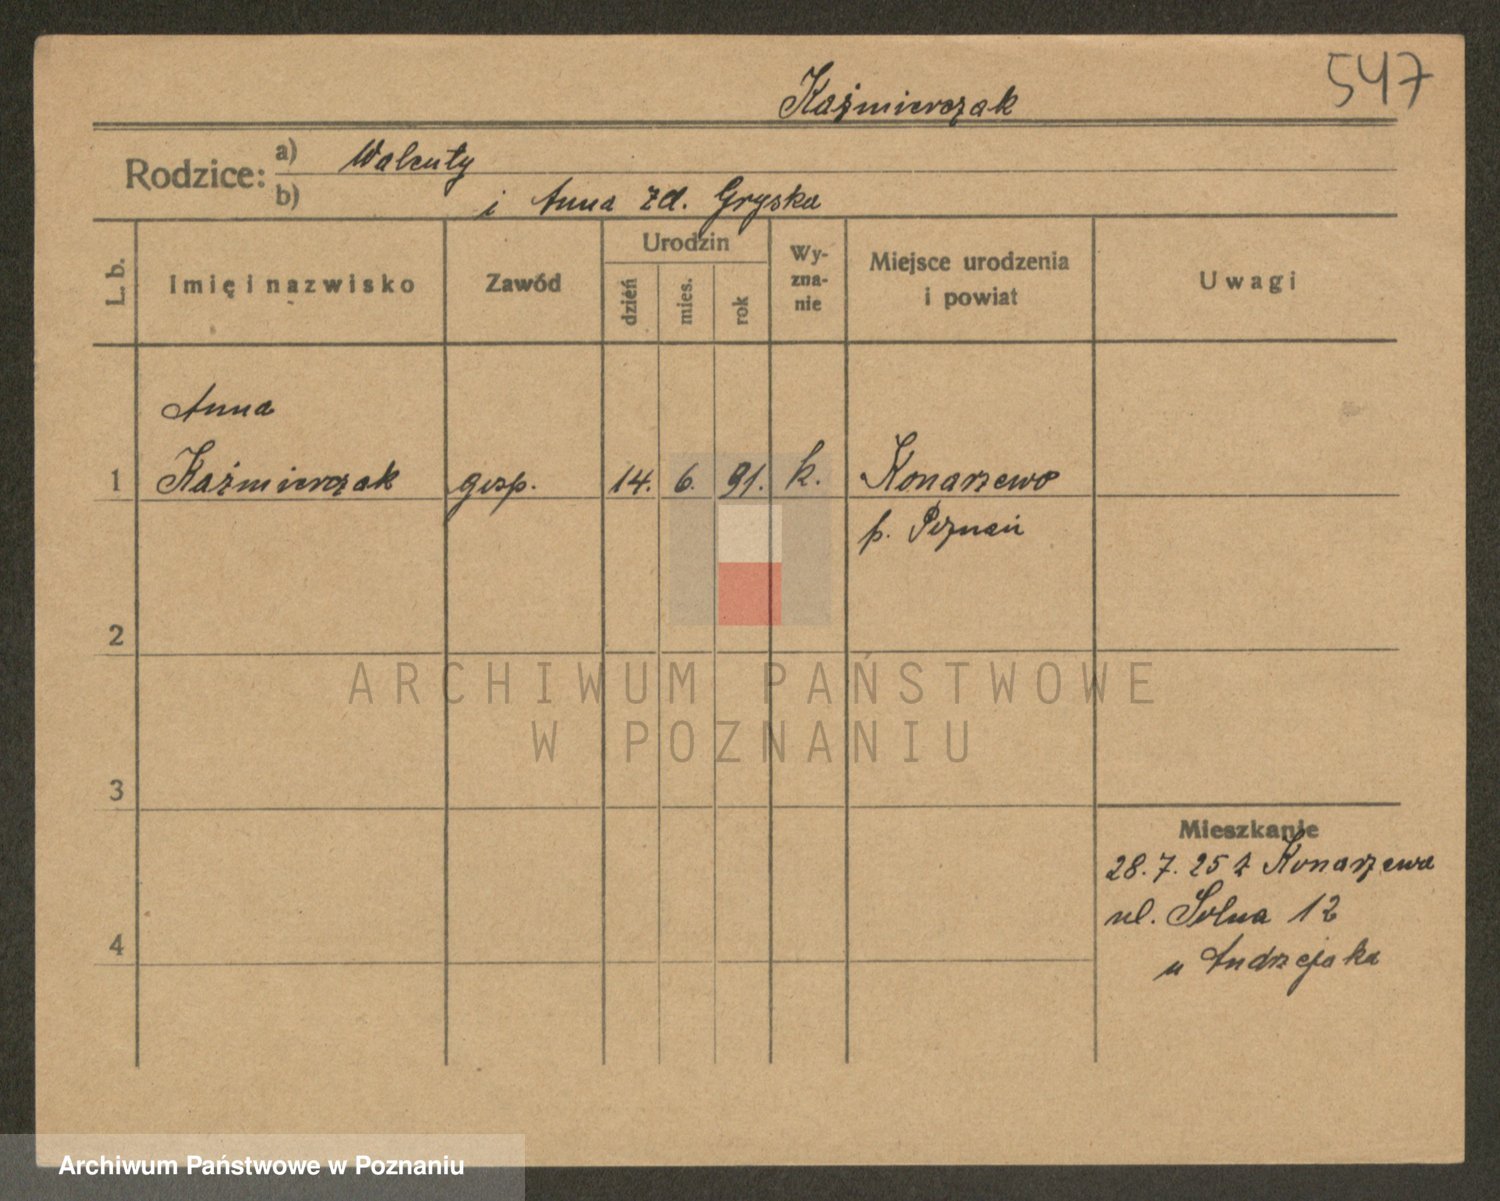 547
Kaźmierczak
Rodzice:
a) Walenty
b) i Anna zd. Gryska
L. b.
Imię i nazwisko
Zawód
Urodzin
dzień
mies.
rok
Wy-
zna-
nie
Miejsce urodzenia
i powiat
Uwagi
Anna
1 Kaźmierczak gosp. 14. 6. 91. k. Konarzewo
p. Poznań
2
3
4
Mieszkanie
28.7.25 z Konarzewa
ul. Solna 12
u Andrzejaka
ARCHIWUM PAŃSTWOWE
W POZNANIU
Archiwum Państwowe w Poznaniu